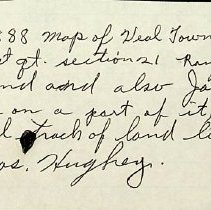 888 Map of Veal Town
st qt. section 21 Ran
and and also Ja
on a part of it
l track of land l
os. Hughey.